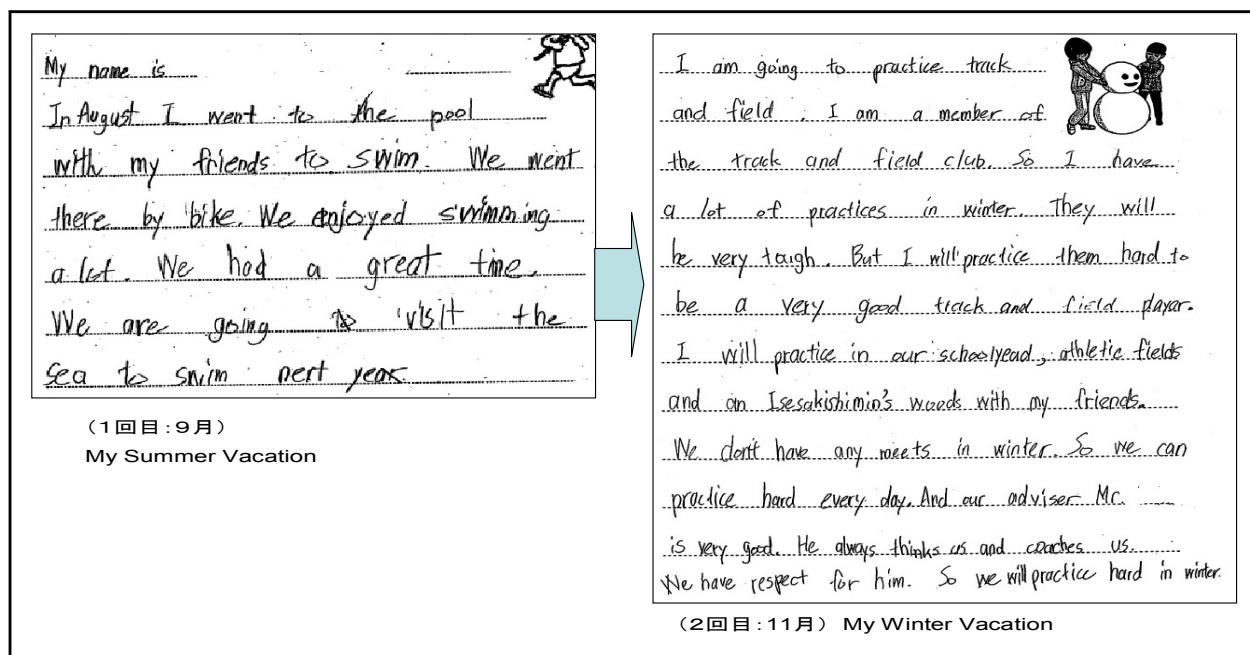 My name is
In August I went to the pool
with my friends to swim. We went
there by bike. We enjoyed swimming
a lot. We had a great time.
We are going to visit the
sea to swim next year.
(1回目:9月)
My Summer Vacation
I am going to practice track
and field. I am a member of
the track and field club. So I have
a lot of practices in winter. They will
be very tough. But I will practice them hard to
be a very good track and field player.
I will practice in our schoolyead, athletic fields
and on Isesakishimin's woods with my friends.
We don't have any meets in winter. So we can
practice hard every day. And our adviser Mr.
is very good. He always thinks us and coaches us.
We have respect for him. So we will practice hard in winter.
(2回目:11月) My Winter Vacation